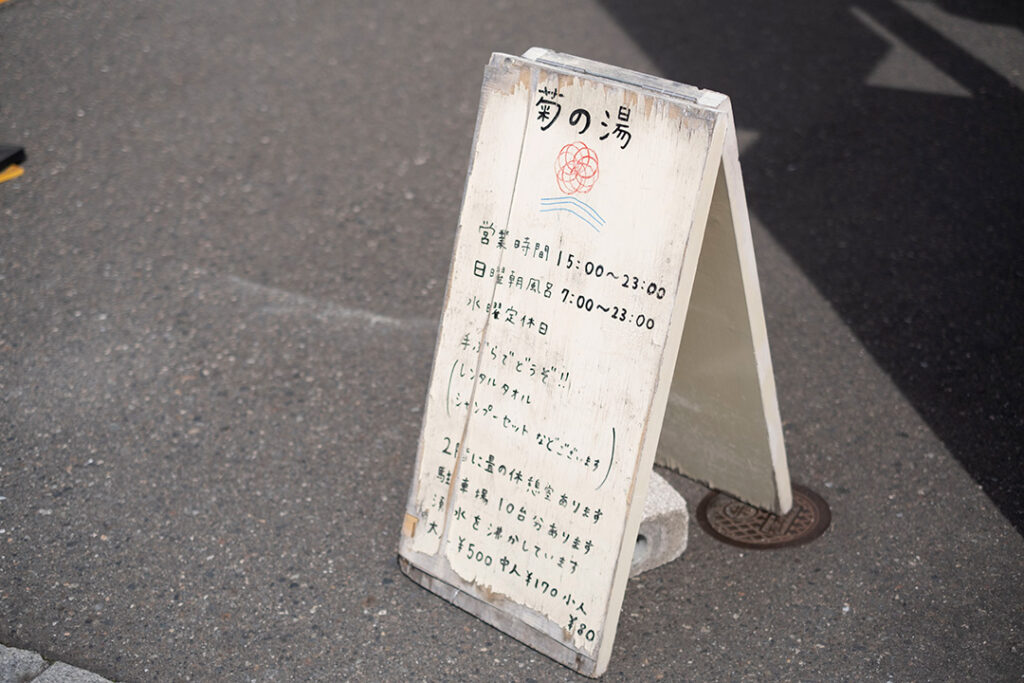 菊の湯
営業時間 15:00〜23:00
日曜朝風呂 7:00〜23:00
水曜定休日
手ぶらでどうぞ!!
(レンタルタオル
シャンプーセット などございます)
2階に畳の休憩室あります
駐車場 10台分あります
水を沸かしています
大人 ¥500 中人 ¥170 小人
¥80